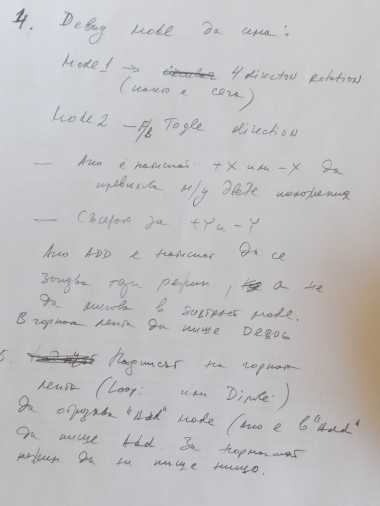 4. Debug mode да има:
Mode 1 → 4 direction rotation
(както е сега)
Mode 2 – F/B Togle direction
— Ако е написан +X или -X да
превключва м/у двете положения
— Същото за +Y и -Y
Ако ADD е написан да се
запазва този режим, а не
да минава в subtract mode.
В горната лента да пише DEBUG
5. Надписът на горната
лента (Loop: или Dipole:)
да отразява "Add" mode (ако е в "Add"
да пише Add. За нормалния
режим да не пише нищо.